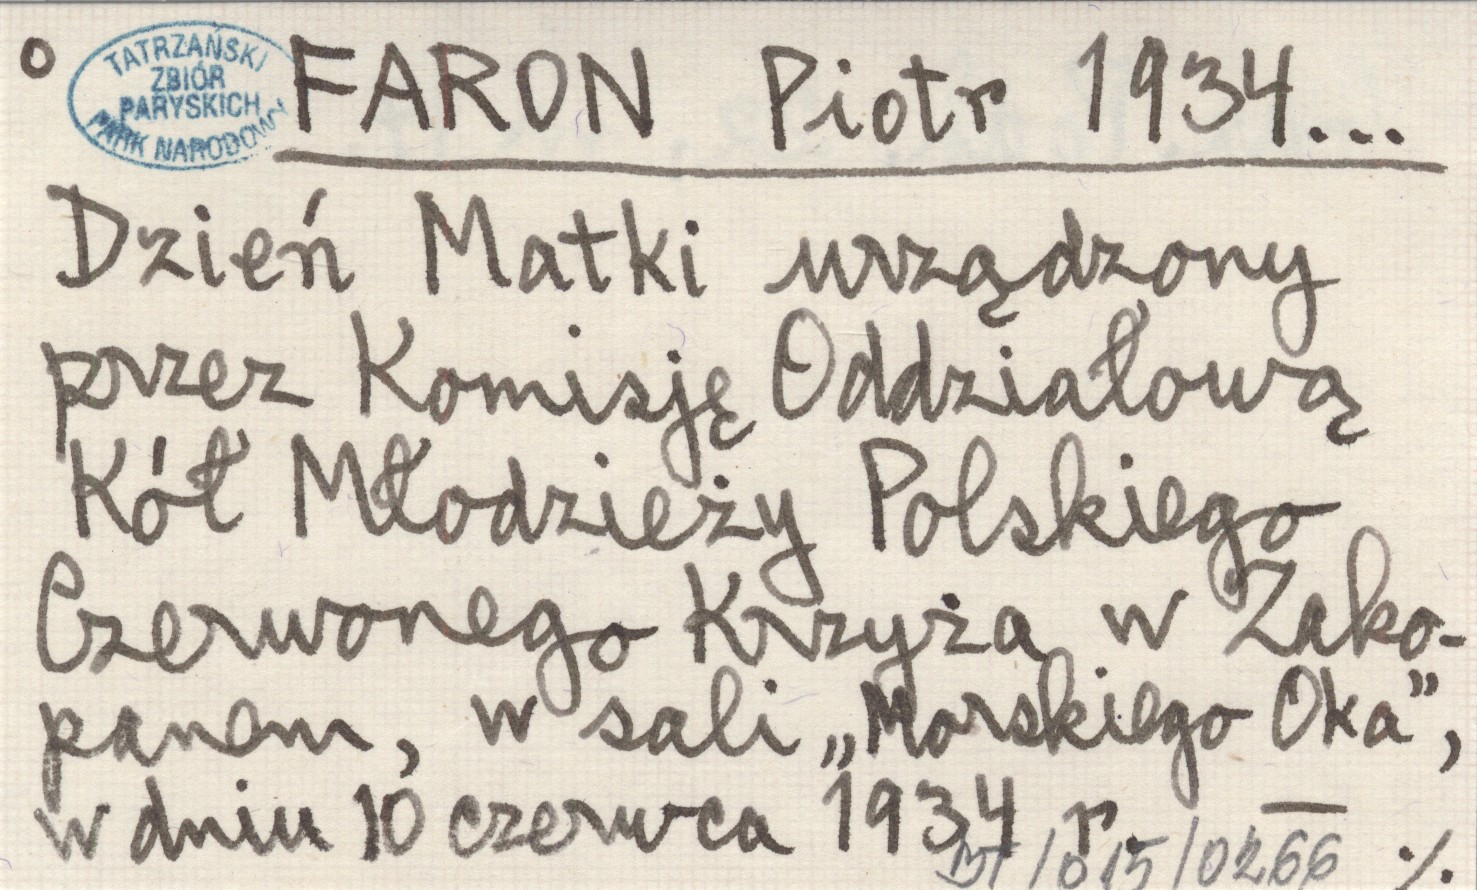 o
TATRZAŃSKI
ZBIÓR
PARYSKICH
PARK NARODOWY
FARON Piotr 1934...
Dzień Matki urządzony
przez Komisję Oddziałową
Kół Młodzieży Polskiego
Czerwonego Krzyża w Zako-
panem, w sali „Morskiego Oka",
w dniu 10 czerwca 1934 r. —
BT/015/0266 ./.